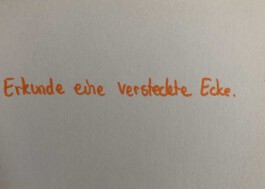 Erkunde eine versteckte Ecke.